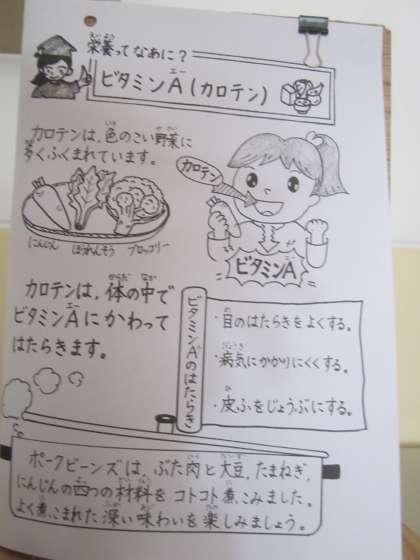 栄養ってなあに？
ビタミンA(カロテン)
カロテンは、色のこい野菜に
多くふくまれています。
カロテン
にんじん ほうれんそう ブロッコリー
ビタミンA
カロテンは、体の中で
ビタミンAにかわって
はたらきます。
ビタミンAのはたらき
・目のはたらきをよくする。
・病気にかかりにくくする。
・皮ふをじょうぶにする。
ポークビーンズは、ぶた肉と大豆、たまねぎ、
にんじんの四つの材料をコトコト煮こみました。
よく煮こまれた深い味わいを楽しみましょう。